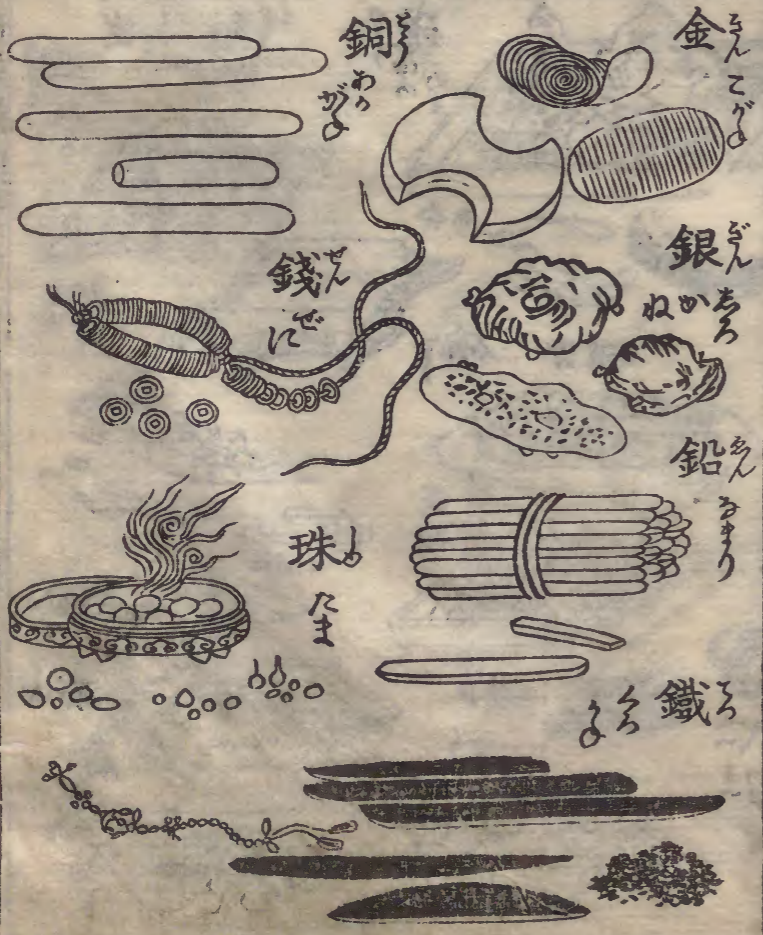 金 きん こがね
銀 ぎん しろかね
鉛 ゑん なまり
鐵 てつ くろがね
銅 とう あかがね
錢 せん ぜに
珠 しゆ たま